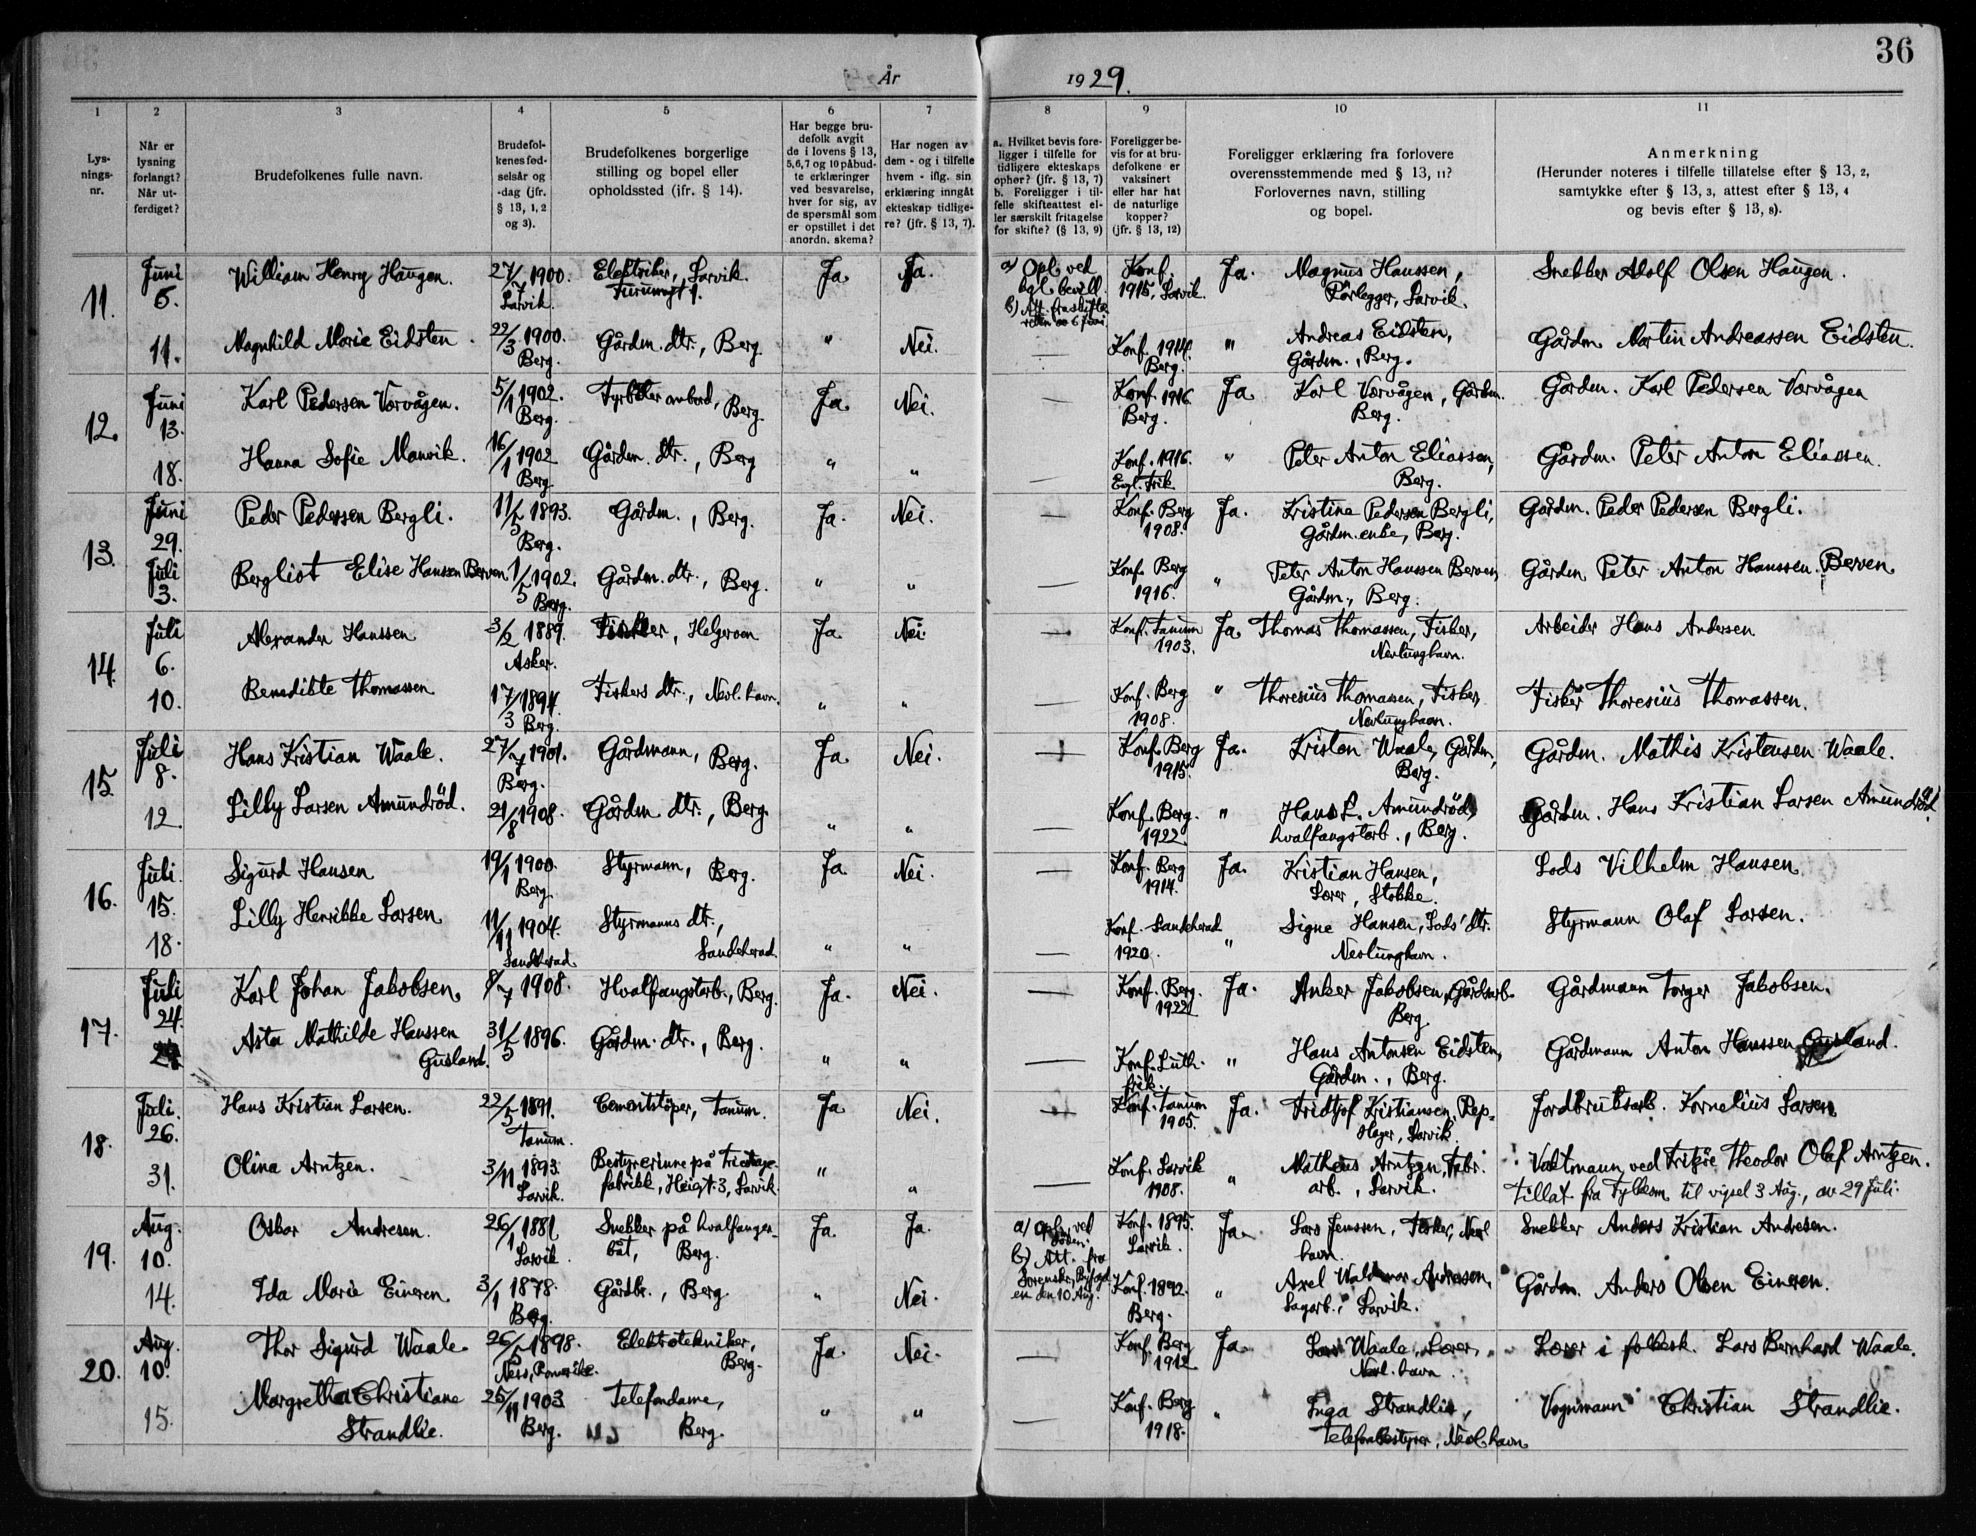 36
År 1929.
1 2 3 4 5 6 7 8 9 10 11
Lysningsnr.
Når er lysning forlangt? Når utferdiget?
Brudefolkenes fulle navn.
Brudefolkenes fødselsår og -dag (jfr. § 13, 1, 2 og 3).
Brudefolkenes borgerlige stilling og bopel eller opholdssted (jfr. § 14).
Har begge brudefolk avgit de i lovens § 13, 5, 6, 7 og 10 påbudte erklæringer ved besvarelse, hver for sig, av de spørsmål som er opstillet i det anordn. skema?
Har nogen av dem - og i tilfelle hvem - iflg. sin erklæring inngåt ekteskap tidligere? (jfr. § 13, 7).
a. Hvilket bevis foreligger i tilfelle for tidligere ekteskaps ophør? (jfr. § 13, 7) b. Foreligger i tilfelle skifteattest eller særskilt fritagelse for skifte? (§ 13, 9)
Foreligger bevis for at brudefolkene er vaksinert eller har hat de naturlige kopper? (jfr. § 13, 12)
Foreligger erklæring fra forlovere overensstemmende med § 13, 11? Forlovernes navn, stilling og bopel.
Anmerkning (Herunder noteres i tilfelle tillatelse efter § 13, 2, samtykke efter § 13, 3, attest efter § 13, 4 og bevis efter § 13, 8).
11. Juni 5. William Henry Haugen. 27/7 1900. Larvik. Elektriker, Larvik Furumgt 1. Ja Ja. a) Opl. ved kgl. bevill. b) Att. fra skifteretten av 6 juni Konf. 1915, Larvik. Ja. Magnus Hanssen, Rørlegger, Larvik. Snekker Adolf Olsen Haugen.
11. Magnhild Marie Eidsten. 22/3 1900. Berg. Gårdm. dtr., Berg " Nei. — Konf. 1914. Berg. " Andreas Eidsten, Gårdm., Berg. Gårdm. Martin Andreassen Eidsten.
12. Juni 13. Karl Pedersen Vorvågen. 5/1 1902. Berg. Fyrbøter ombord, Berg. Ja. Nei. — Konf. 1916 Berg. Ja. Karl Vorvågen, Gårdm. Berg. Gårdm. Karl Pedersen Vorvågen
18. Hanna Sofie Manvik. 16/1 1902 Berg Gårdm. dtr., Berg " " — Konf. 1916. Evgl. frik. " Peter Anton Eliassen, Berg. Gårdm. Peter Anton Eliassen.
13. Juni 29. Peder Pedersen Bergli. 11/5 1893. Berg. Gårdm., Berg. Ja. Nei. — Konf. Berg 1908. Ja. Kristine Pedersen Bergli, Gårdm. enke, Berg. Gårdm. Peder Pedersen Bergli.
Juli 3. Bergliot Elise Hanssen Berven. 1/5 1902. Berg. Gårdm. dtr., Berg. " " — Konf. Berg 1916. " Peter Anton Hanssen Berven, Gårdm., Berg. Gårdm. Peter Anton Hanssen Berven.
14. Juli 6. Alexander Hanssen 3/2 1889. Asker. Fisker, Helgeroen Ja Nei. — Konf. Tanum 1903. Ja. Thomas Thomassen, Fisker, Nevlunghavn. Arbeider Hans Andersen
10. Benedikte Thomassen 17/3 1894. Berg. Fiskers dtr., Nevl.havn. " " — Konf. Berg 1908. " Thoresius Thomassen, Fisker, Nevlunghavn. Fisker Thoresius Thomassen.
15. Juli 8. Hans Kristian Waale. 27/7 1901. Berg. Gårdmann, Berg. Ja. Nei. — Konf. Berg 1915. Ja. Kristen Waale, Gårdm., Berg. Gårdm. Mathis Kristensen Waale.
12. Lilly Larsen Amundröd. 21/8 1908. Gårdm. dtr., Berg. " " — Konf. Berg. 1922. " Hans L. Amundröd, hvalfangstarb., Berg. Gårdm. Hans Kristian Larsen Amundröd.
16. Juli. 15. Sigurd Hansen 19/1 1900. Berg. Styrmann, Berg. Ja Nei. — Konf. Berg 1914. Ja. Kristian Hansen, Lærer, Stokke. Lods Vilhelm Hansen
18. Lilly Henrikke Larsen 11/11 1904. Sandeherad. Styrmanns dtr., Sandeherad. " " — Konf. Sandeherad 1920. " Signe Hansen, Lods' dtr. Nevlunghavn. Styrmann Olaf Larsen.
17. Juli 24. Karl Johan Jakobsen. 8/7 1908. Hvalfangstarb., Berg. Ja. Nei. — Konf. Berg. 1922 Ja. Anker Jakobsen, Gårdsarb. Berg. Gårdmann Torger Jakobsen.
Asta Mathilde Hanssen Gusland. 31/5 1896. Gårdm. dtr., Berg. " " — Konf. Luth. frik. " Hans Antonsen Eidsten, Gårdm., Berg. Gårdmann Anton Hanssen Gusland.
18. Juli. 26. Hans Kristian Larsen. 22/5 1891. Tanum. Cementstøper, Tanum. Ja Nei. — Konf. Tanum 1905. Ja. Fridtjof Kristiansen, Repslager, Larvik. Jordbruksarb. Kornelius Larsen
31. Olina Arntzen. 3/11 1893. Larvik. Bestyrerinne på Tricotagefabrikk, Heigt. 3, Larvik. " " — Konf. Larvik 1908. " Matheus Arntzen, Fabr. arb., Larvik. Vaktmann ved Fritzøe Theodor Olaf Arntzen. Tillat. fra Fylkesm. til vigsel 3 Aug., av 29 Juli.
19. Aug. 10. Oskar Andresen. 26/1 1881 Larvik. Snekker på hvalfangerbåt, Berg. Ja. Ja. a) Opl. ved döden. b) Att. fra Sorenskr. av den 10 Aug. Konf. 1895. Larvik. Ja. Lars Jenssen, Fisker, Nevl havn. Snekker Anders Kristian Andresen.
14. Ida Marie Eineren 3/1 1878. Berg. Gårdbr., Berg. " Nei. Konf. 1892. Berg. " Axel Waldemar Andresen, Sagarb., Larvik. Gårdm. Anders Olsen Eineren.
20. Aug. 10. Thor Sigurd Waale. 26/5 1898. Nes, Romerike. Elektrotekniker, Berg. Ja. Nei. — Konf. Berg 1912 Ja. Lars Waale, Lærer, Nevl. havn. Lærer i folkesk. Lars Bernhard Waale.
15. Margretha Christiane Strandlie. 25/11 1903 Berg. Telefondame, Berg. " " — Konf. Berg 1918. " Inga Strandlie, Telefonbestyrer, Nevl.havn Vognmann Christian Strandlie.